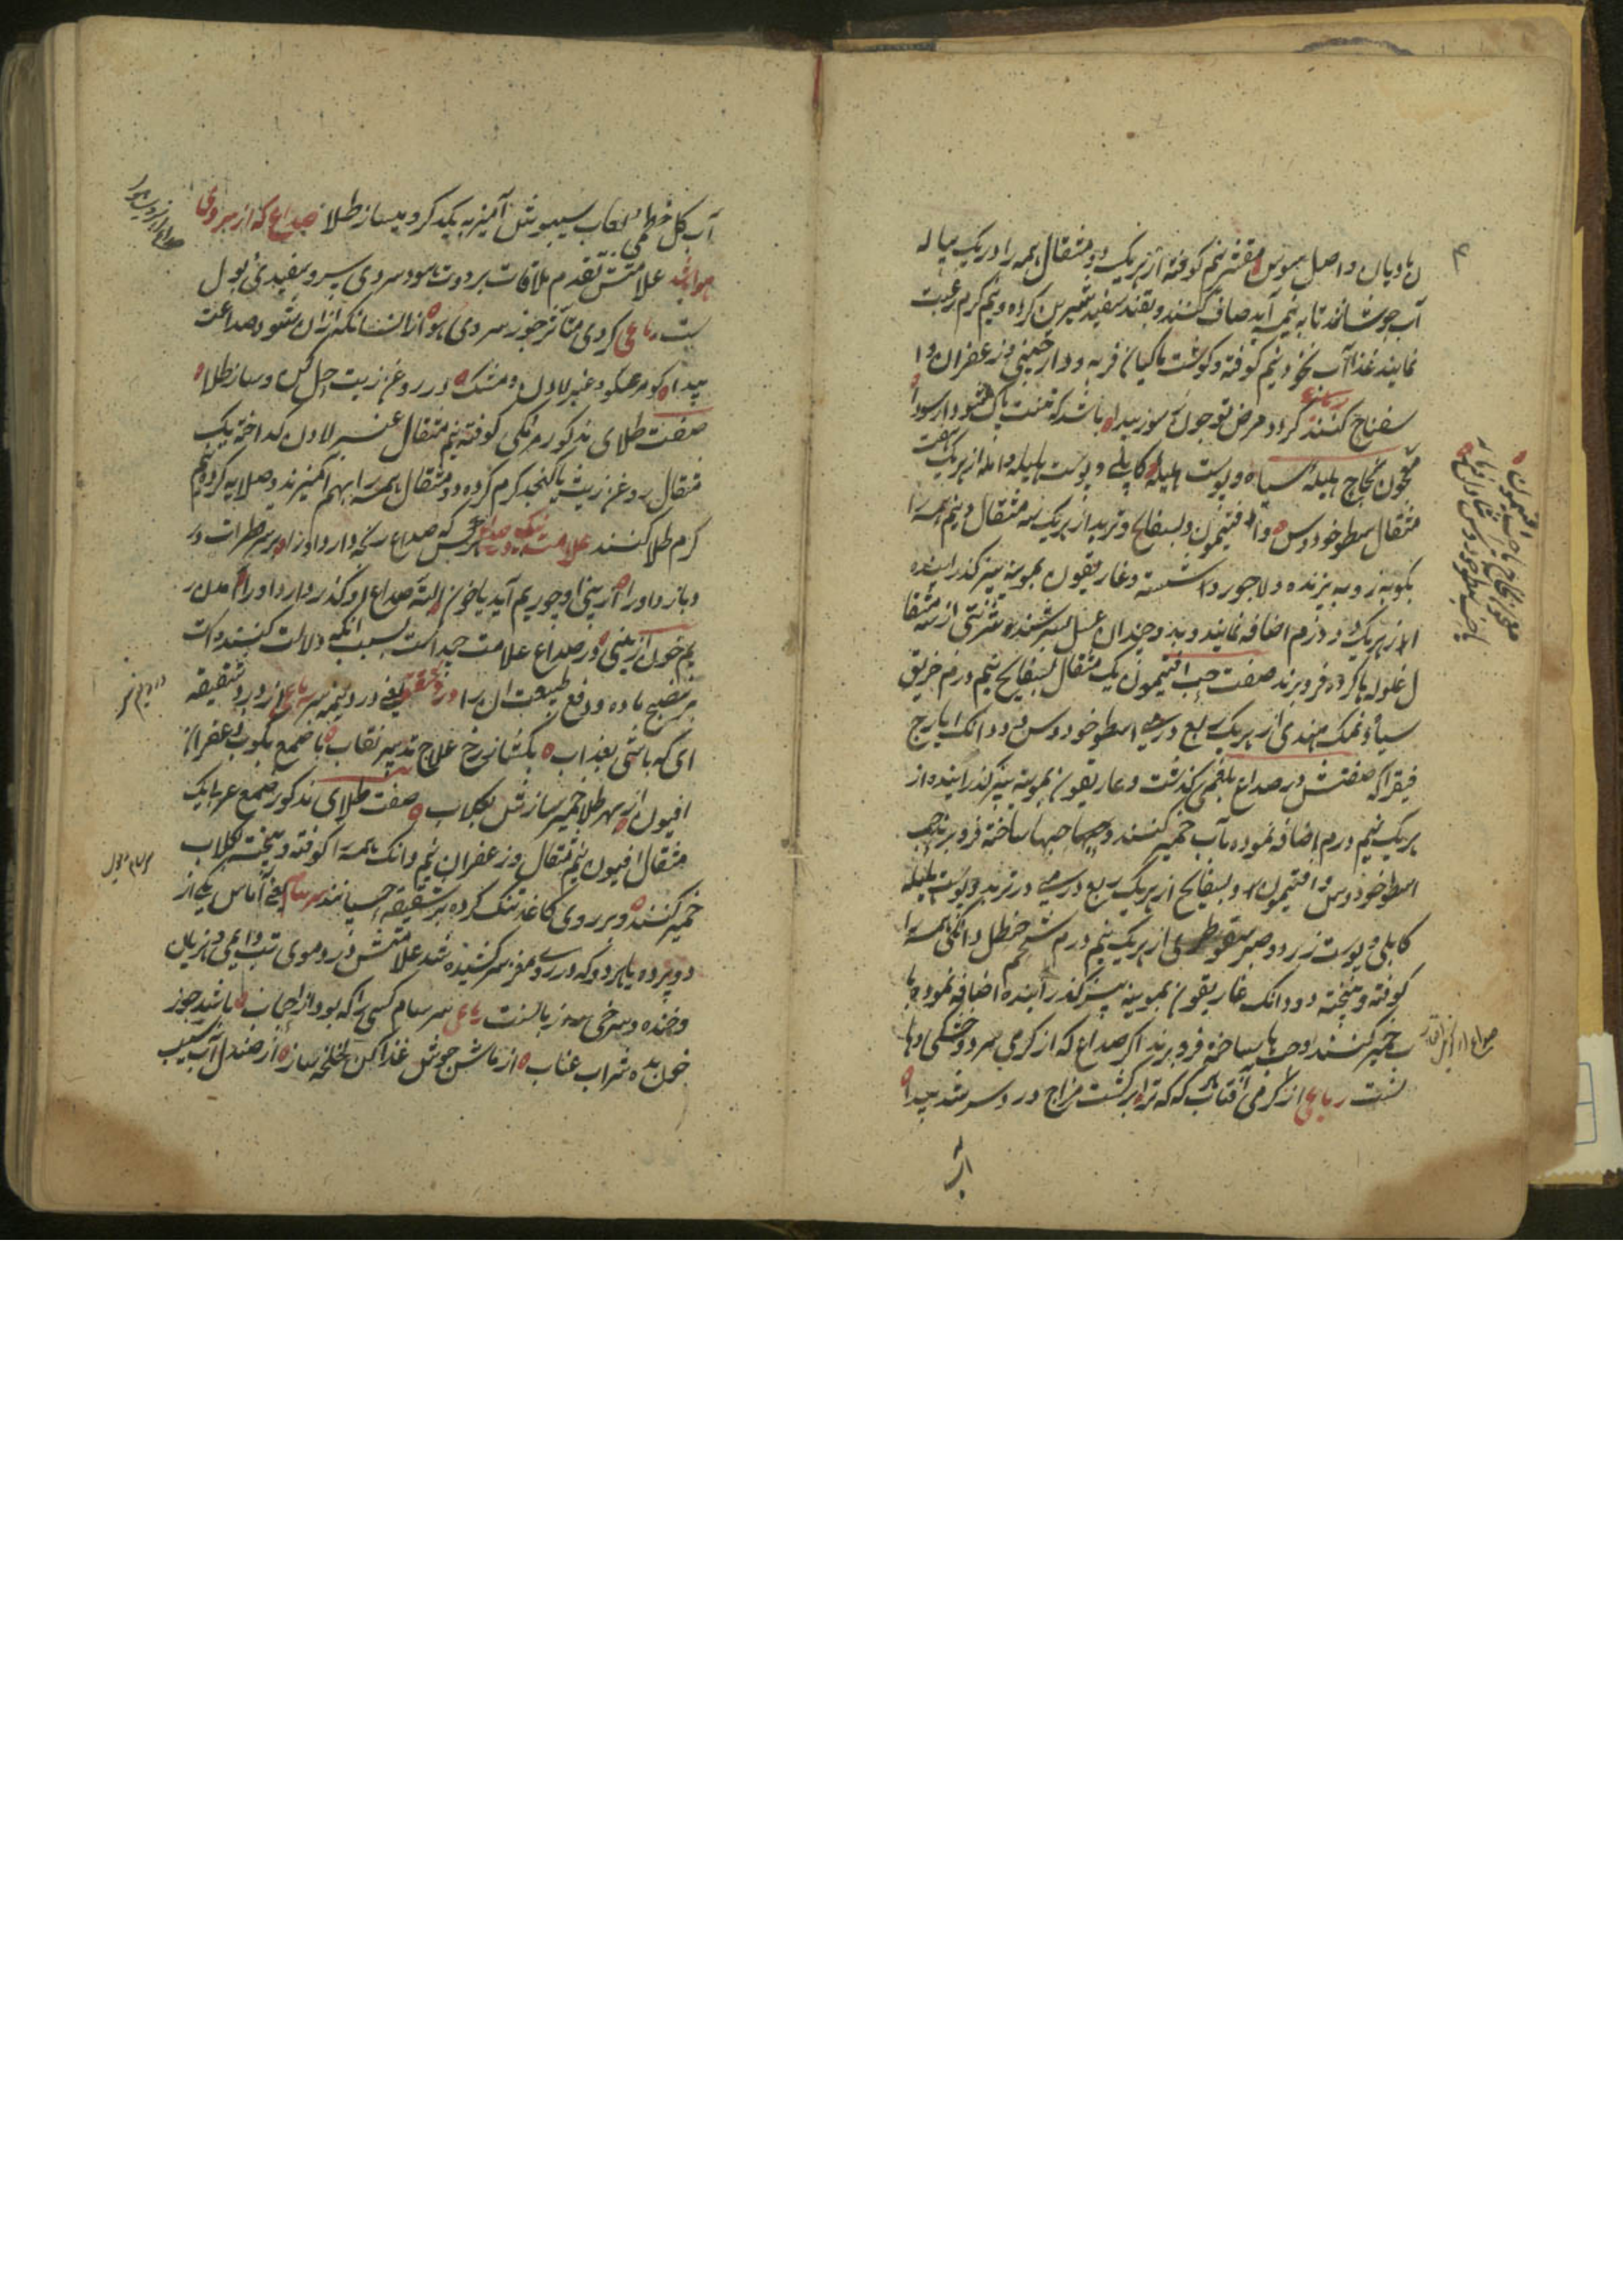 ن بادیان و اصل سوس مقشر نیم کوفته از هر یک دو مثقال همه را در یک پیاله
آب جوشانند تا به نیمه آید صاف کنند و بقند سفید شیرین کرده نیم گرم رغبت
نمایند غذا آب نخود نیم کوفته و گوشت ماکیان فربه و دارچینی و زعفران و ا
سفناج کنند گر درد مرض تو چون شود پیدا باشد که تنت پاک شود از سودا
معجون نجاح هلیله سیاه و پوست هلیله کابلی و پوست بلیله و آمله از هر یک هفت
مثقال اسطوخودوس و افتیمون و بسفایج و تربد از هر یک سه مثقال و نیم همه را
بکوبند و به پزنده و لاجورد شسته و غاریقون بمویینه بیز گذرانیده
از هر یک دو درم اضافه نمایند و به دو چندان عسل بسرشند شربتی از سه مثقا
ل غلوله ها کرده فرو برند صفت حب افتیمون یک مثقال بسفایج نیم درم خربق
سیاه و نمک هندی از هر یک ربع درمی اسطوخودوس دو دانک ایارج
فیقرا که صفتش در صداع بلغمی گذشت و غاریقون بمویینه بیز گذرانیده از
هر یک نیم درم اضافه نموده بآب خمیر کنند و حبها ساخته فرو برند حب
اسطوخودوس و افتیمون و بسفایج از هر یک ربع درمی در تربد و پوست هلیله
کابلی و پوست زرد و صبر سقوطری از هر یک نیم درم شحم حنظل دانکی همه را
کوفته و بیخته دو دانک غاریقون بمویینه بیز گذرانیده اضافه نموده با
ب خمیر کنند و حبها ساخته فرو برند اگر صداع که از گرمی بود و خشکی دها
نست رباعی از گرمی آفتاب هر که که ترا برگشت مزاج و درد سر شد پیدا
آب گل خطمی و لعاب سبیوش آمیز به یکدگر و میساز طلا صداع که از سردی
هوا باشد علامتش تقدم ملاقات برودت هوا و سردی سر و سفیدی بول
ست رباعی گردی متاثر چو ز سردی هوا زانسانکه ازان شود صداعت
پیدا کو مرمکی و عنبر لادن و مشک در روغن زیت حل کن و ساز طلا
صفت طلای مذکور مرمکی کوفته نیم مثقال عنبر لادن گداخته یک
مثقال روغن زیت یا کنجد گرم کرده دو مثقال همه را بهم آمیزند و صلایه کرده نیم
گرم طلا کنند علامت نیک در صداع هر کس که صداع رنجه دارد او را در سر خطرات در
دبازد او را از بینی او چو ریم آید یا خون البته صداع او گذر دارد او را آمدن ر
یم خون از بینی در صداع علامت جید است بسبب انکه دلالت کننده است
بر نضج ماده و دفع طبیعت آن را در شقیقه یعنی درد نیمه سر رباعی از درد شقیقه
ای که باشی بعذاب بگشا ز رخ علاج تدبیر نقاب با صمغ بکوب زعفران
افیون از بهر طلا خمیر ساز ش بگلاب صفت طلای مذکور صمغ عربی یک
مثقال افیون نیم مثقال و زعفران نیم دانک همه را کوفته و بیخته بگلاب
خمیر کنند و بر روی کاغذ تنک کرده بر شقیقه چسپانند سرسام یعنی آماس یکی از
دو پرده یا هر دو که در سر و مغز سر کشیده شد علامتش در دموی تب دایمی و هذیان
و خنده و سرخی و زبانست رباعی سرسام کسی را که بود از اجناب باشد چو ز
خون بده شراب عناب از ماش جوش غذا کن لخلخه ساز از صندل آب سیب